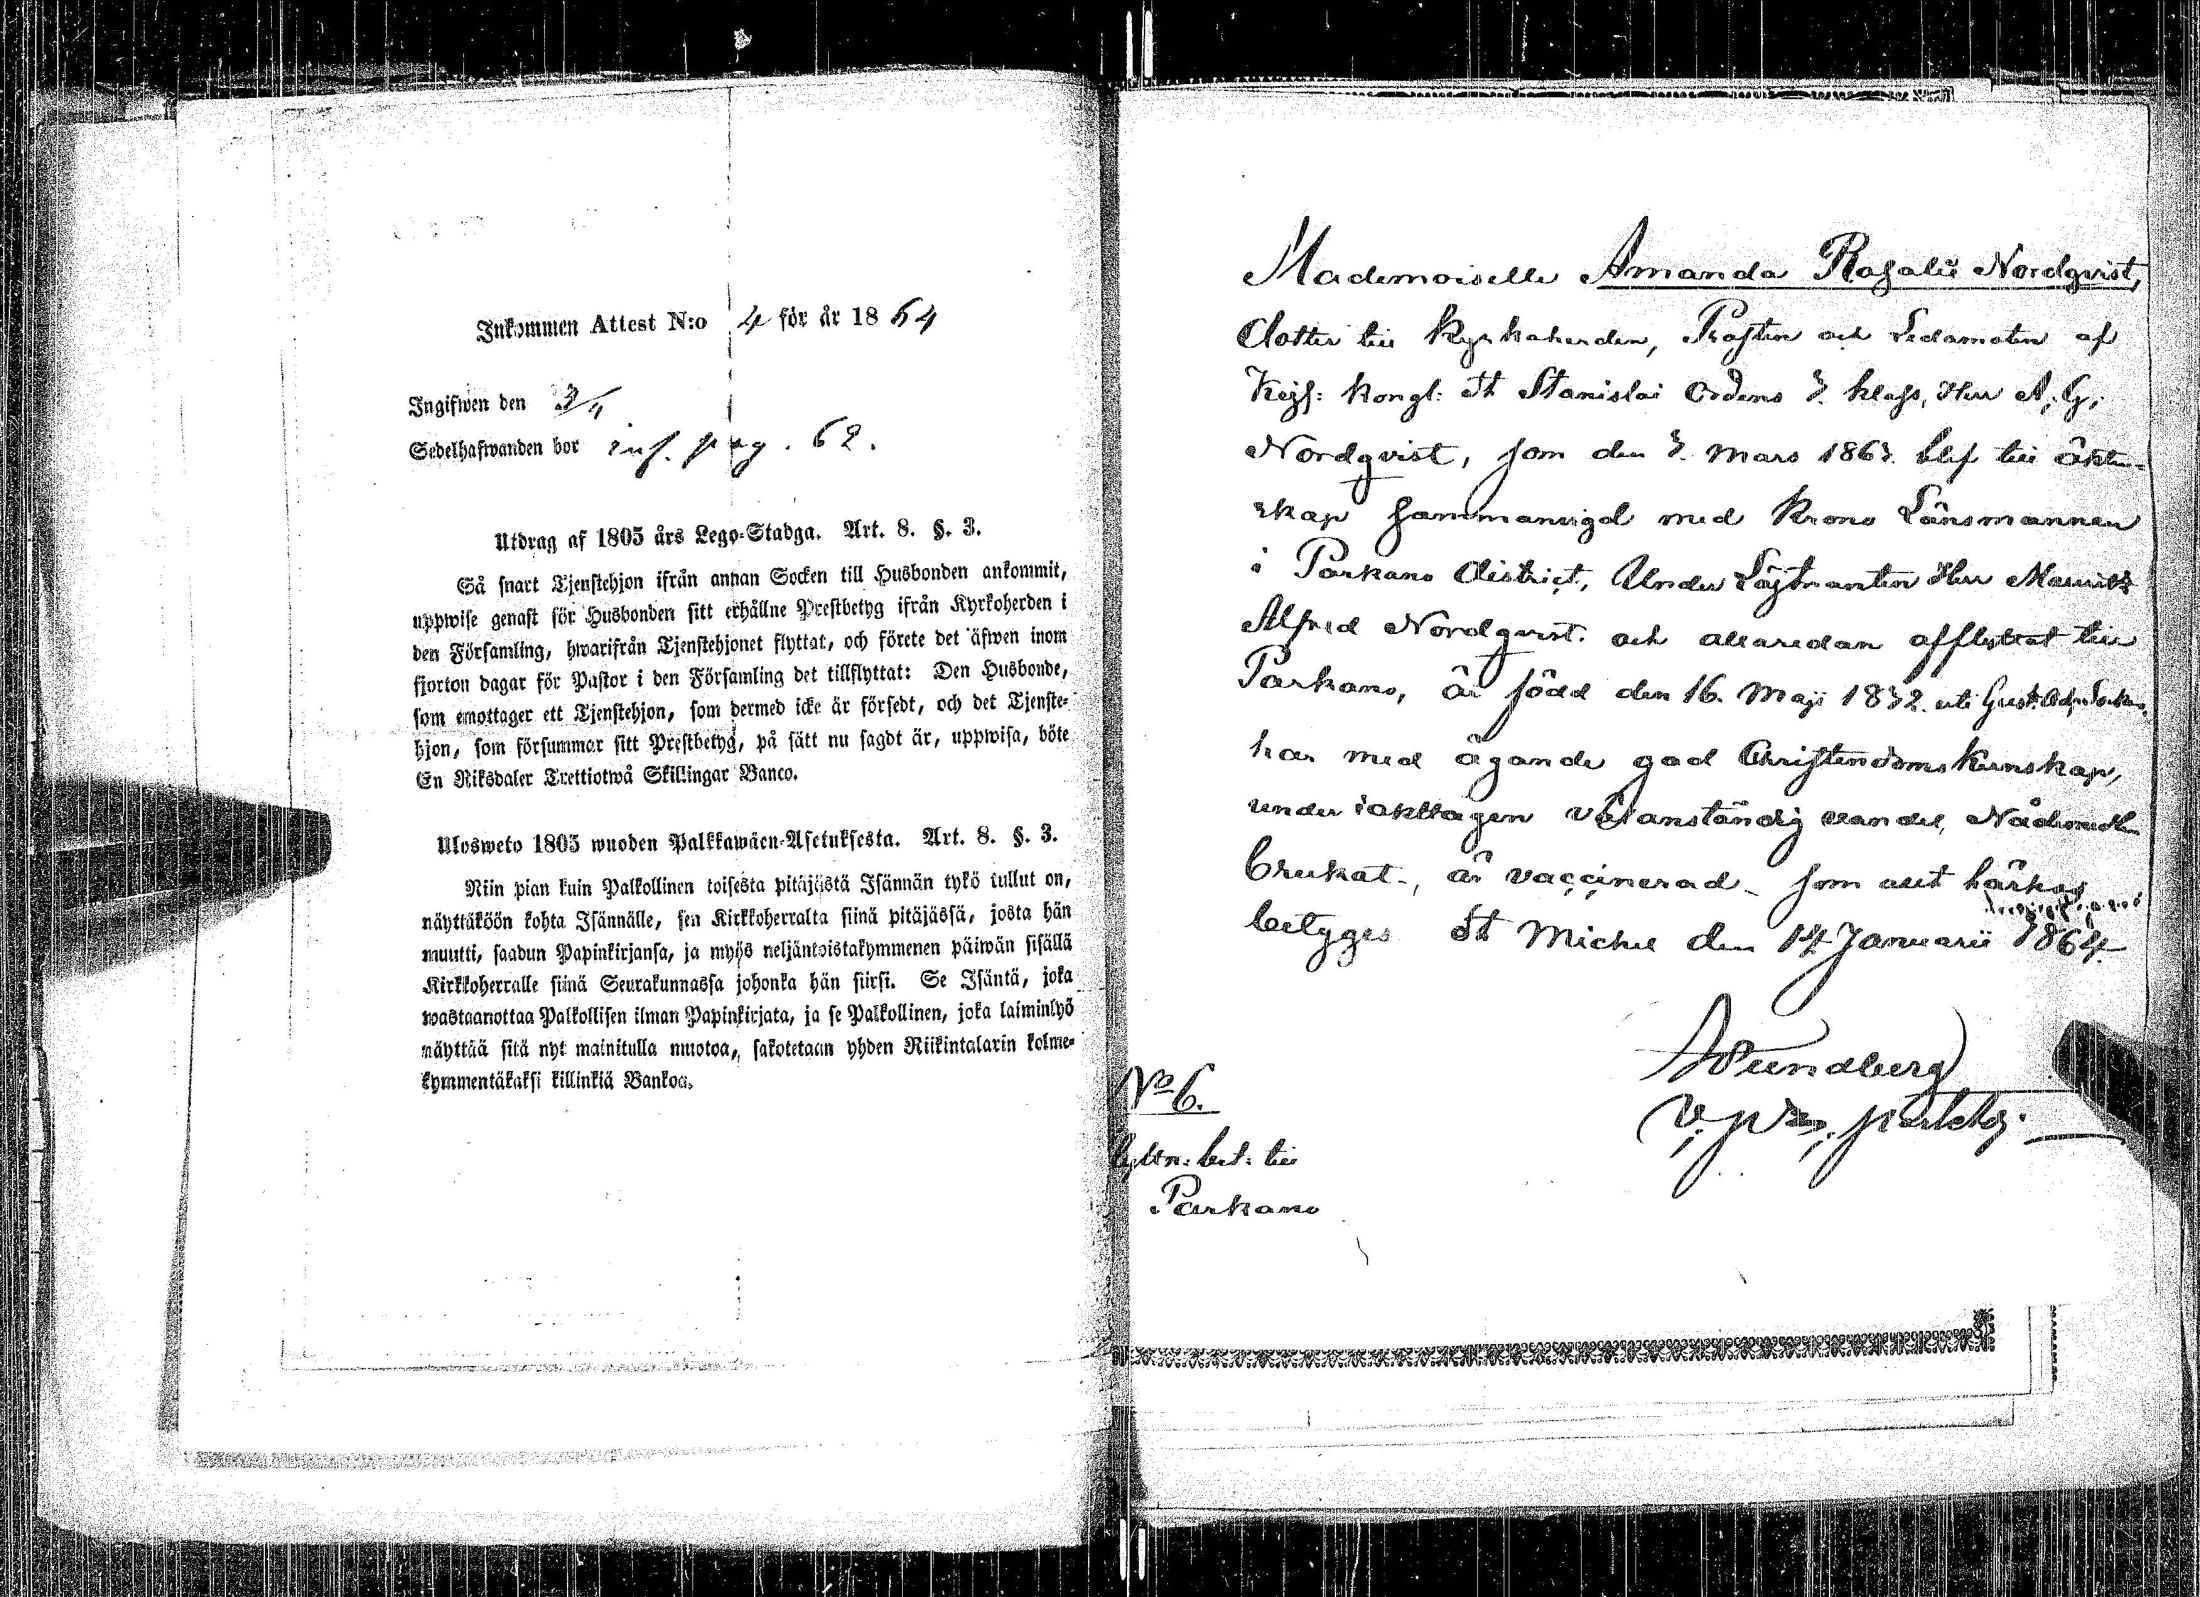 Inkommen Attest N:o 4 för år 1864
Ingifwen den 3/4
Sedelhafwanden bor inf. pag. 62.
Utdrag af 1805 års Lego-Stadga. Art. 8. §. 3.
Så snart Tjenstehjon ifrån annan Socken till Husbonden ankommit,
uppwise genast för Husbonden sitt erhållne Prestbetyg ifrån Kyrkoherden i
den Församling, hwarifrån Tjenstehjonet flyttat, och förete det äfwen inom
fjorton dagar för Pastor i den Församling det tillflyttat: Den Husbonde,
som emottager ett Tjenstehjon, som dermed icke är försedt, och det Tjenste-
hjon, som försummar sitt Prestbetyg, på sätt nu sagdt är, uppwisa, böte
En Riksdaler Trettiotwå Skillingar Banco.
Ulosweto 1805 wuoden Palkkawäen-Asetuksesta. Art. 8. §. 3.
Niin pian kuin Palkollinen toisesta pitäjästä Isännän tykö tullut on,
näyttäköön kohta Isännälle, sen Kirkkoherralta siinä pitäjässä, josta hän
muutti, saadun Papinkirjansa, ja myös neljäntoistakymmenen päiwän sisällä
Kirkkoherralle siinä Seurakunnassa johonka hän siirsi. Se Isäntä, joka
wastaanottaa Palkollisen ilman Papinkirjata, ja se Palkollinen, joka laiminlyö
näyttää sitä nyt mainitulla muotoa, sakotetaan yhden Riikintalarin kolme-
kymmentäkaksi killinkiä Bankoa.
Mademoiselle Amanda Rosalie Nordqvist,
dotter till Kyrkoherden, Prosten och Ledamoten af
Kejs: Kongl: St Stanislai Ordens 3. klass, Herr A. G.
Nordqvist, som den 3. Mars 1863. blef till äkten-
skap sammanvigd med Krono Länsmannen
i Parkano district, Under Löjtnanten Herr Mauritz
Alfred Nordqvist. och allaredan afflyttat till
Parkano, är född den 16. Maji 1832. uti Gust. Adolfs Socken,
har med ägande god Christendoms kunskap,
under iakttagen välanständig vandel, Nådemedlen
brukat, är vaccinerad. som allt härhos
betyges St Michel den 14 Januarii 1864.
A Sundberg
V. P.
No 6.
Flyttn: bet: till
Parkano